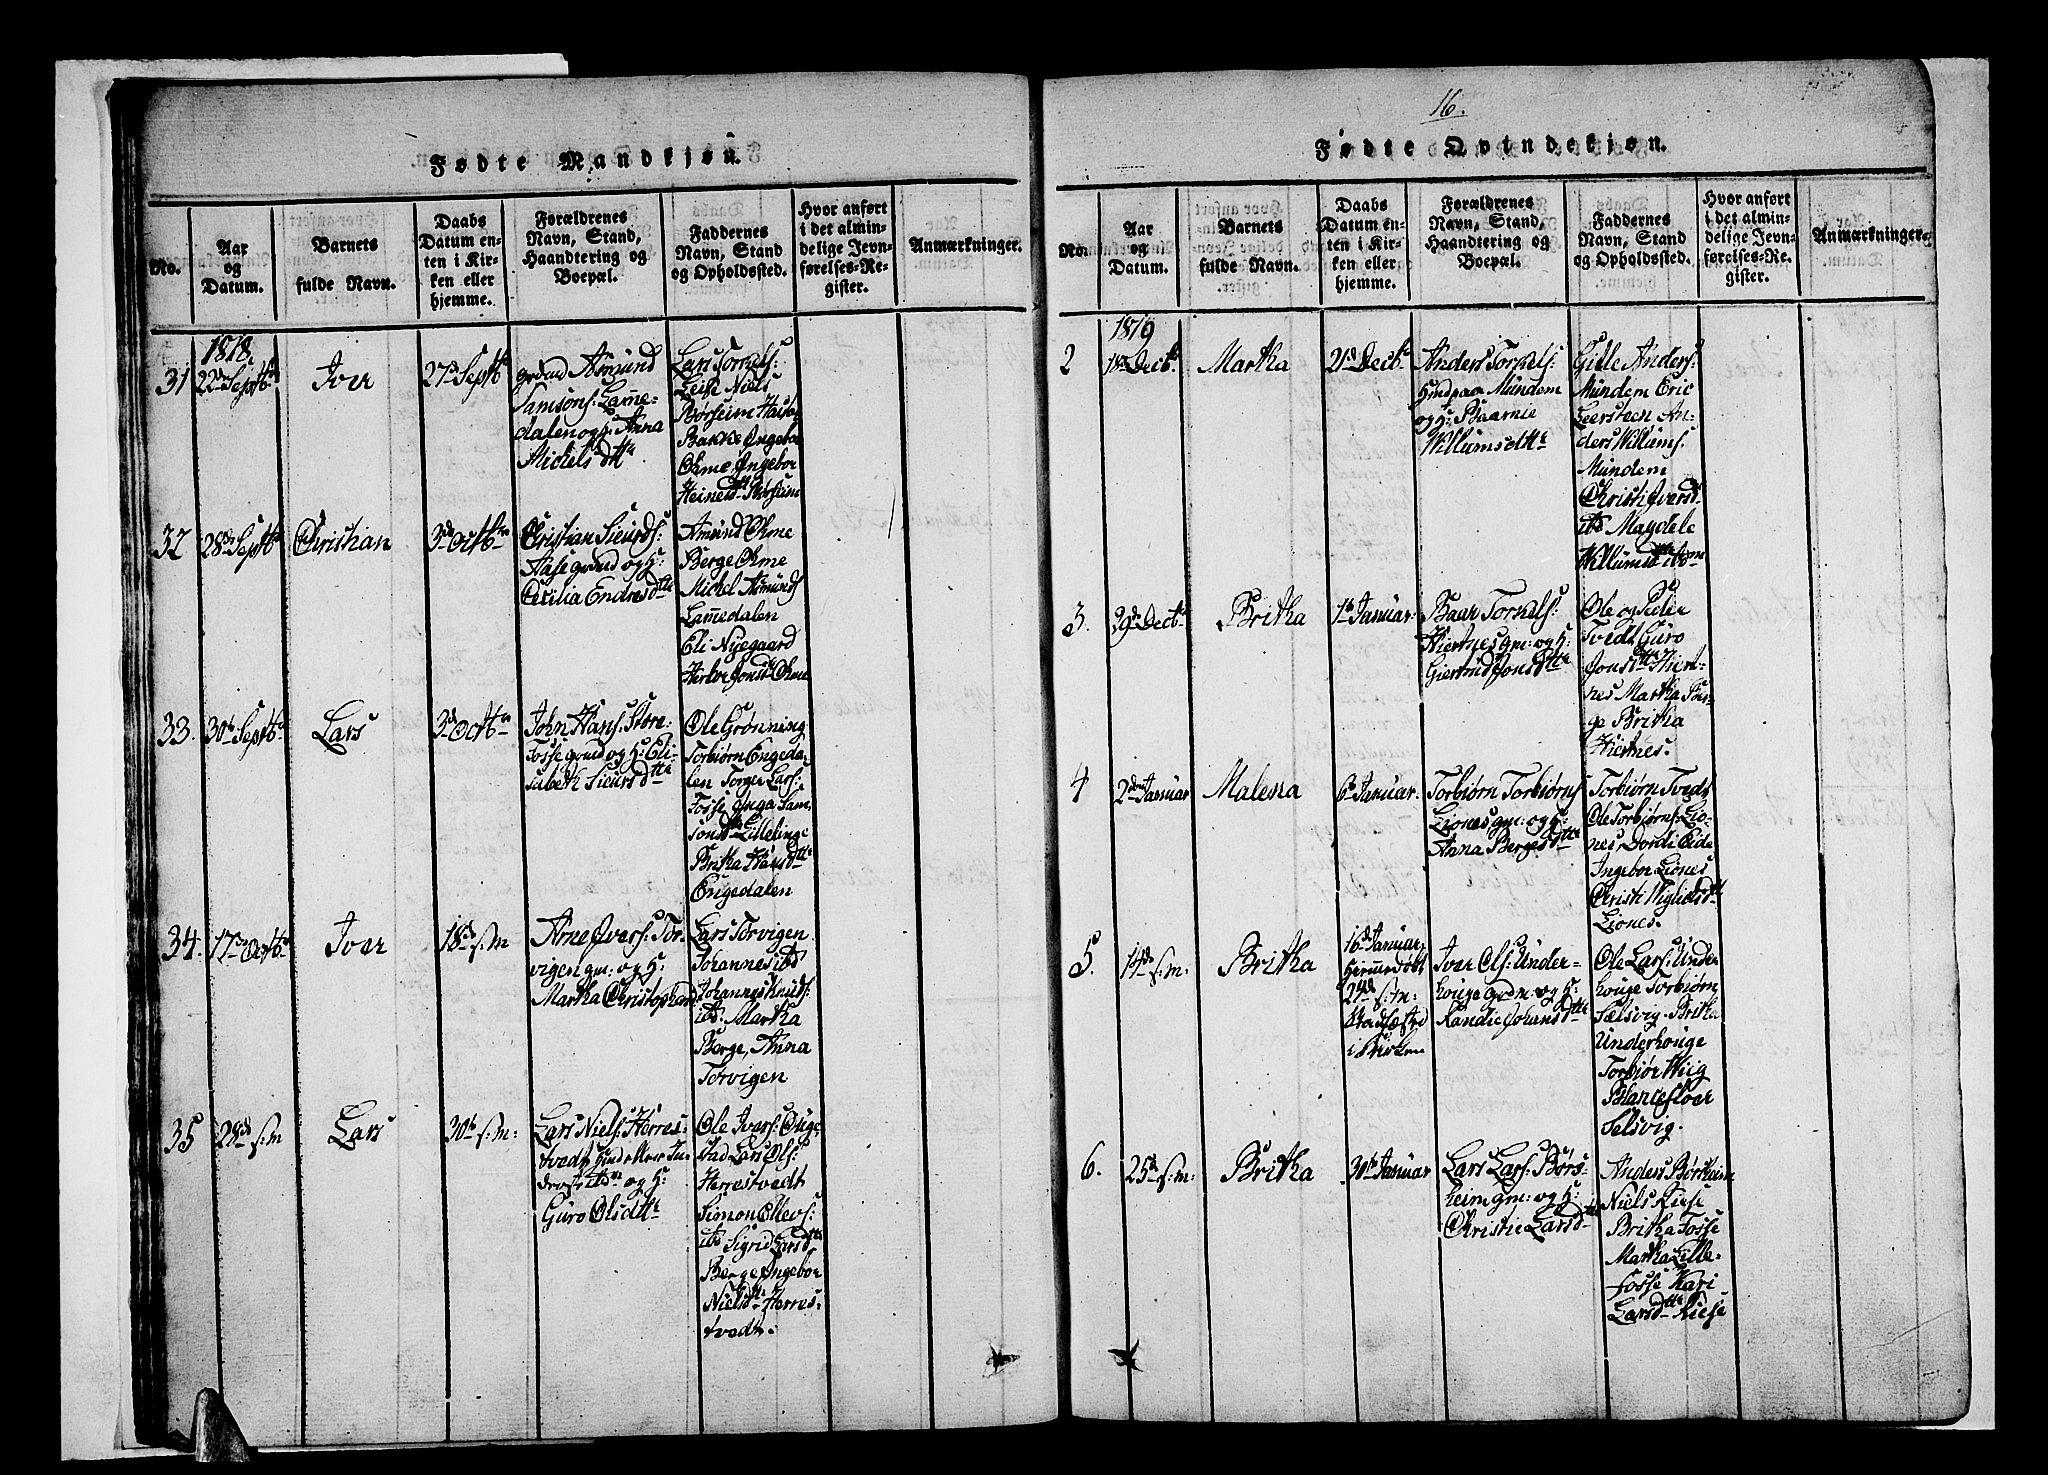 16.
Fødte Mandkjøn.
No.
Aar
og
Datum.
Barnets
fulde Navn.
Daabs
Datum en-
ten i Kir-
ken eller
hjemme.
Forældrenes
Navn, Stand,
Haandtering og
Boepæl.
Faddernes
Navn, Stand
og Opholdssted.
Hvor anført
i det almin-
delige Jevn-
førelses-Re-
gister.
Anmærkninger.
1818,
31
22de Septbr
Iver
27d Septbr
grdmd Asmund
Samsons: Lamme-
dalen og h: Anna
Michelsdttr
Lars Torkels:
Leite Niels
Børseim
Bakke Ingebor
Ohme Ingebor
Heinesdtr Børseim
32
28de Septbr
Christian
3d Octbr
Christian Siurds:
Aase grdmd og h:
Cecilia Endresdttr
Amund Ohme
Berge Ohme
Michel Asmunds
Lammedalen
Eli Nyegaard
Herbor Jonsdtr Ohme
33.
30te Septbr
Lars
3d Octbr
John Hans: Store-
Fosse grmd og h: Eli-
sabeth Siursdttr
Ole Grønning
Torbiørn Engeda-
len Torger Lars:
Fosse Inga Sam-
sonsdtr Lillelinge
Britha Hansdttr
Engedalen
34.
17de Octbr
Iver
18d s: m
Arne Ivers: Tor-
vigen gm: og h:
Martha Christophersd
Lars Torvigen
Johannes ibd
Johannes Knuds:
ibd. Martha
Berge, Anna
Torvigen
35
28de s: m
Lars
30te s: m:
Lars Niels: Herres-
tvedt
og h:
Guro Olsdttr
Ole Ivers:
stad Lars Ols:
Herrestvedt
Simon Ellevs:
ibd Sigrid Larsdttr
Berge Ingebor
Nielsdtr Herres-
tvedt.
Fødte Qvindekjøn.
No.
Aar
og
Datum.
Barnets
fulde Navn.
Daabs
Datum en-
ten i Kir-
ken eller
hjemme.
Forældrenes
Navn, Stand,
Haandtering og
Boepæl.
Faddernes
Navn, Stand
og Opholdssted.
Hvor anført
i det almin-
delige Jevn-
førelses-Re-
gister.
Anmærkninger.
1819
2
18de Decbr
Martha
21d Decbr
Anders Torkels:
Hmd paa Mundem
og h: Baarnie
Willumsdttr
Gitle Anders:
Mundem Eric
Leersteen An-
ders Willums:
Mundem
Christi Iversd
ibd Magdele
Willumsdttr ibm
3.
29de Decbr
Britha
1te Januar:
Baar Torkels:
Hiertnes gm: og h:
Giertrud Jonsdttr
Ole og Peder
Tvedt Guro
Jonsdttr Hiert-
nes Martha Ber-
ge Britha
Hiertnes.
4
2den Januar
Malena
6te Januar.
Torbiørn Torbiørns
Liones gm: og h:
Anna Bergesdttr
Torbiørn Tvedt
Ole Torbiørns: Lio-
nes, Dordi Eide
Ingebor Liones
Christi Wigleiksdtt
Liones.
5.
14de s: m:
Britha
16d Januar
Hiemmedøbt
24d s: m:
Stadfæstet
i Kirken
Iver Ols: Under-
houge grdm: og h:
Randie Johansdttr
Ole Lars: Under
houge Torbiørn
Sælsvig. Britha
Underhouge
Torbiør Wiig
Blanceflor
Selsvig.
6.
25de s: m:
Britha
30te Januar
Lars Lars: Børs-
heim gm: og h:
Christie Larsdtr
Anders Børsheim
Niels Kiese
Britha Fosse
Martha Lille-
fosse Kari
Larsdttr Kiese